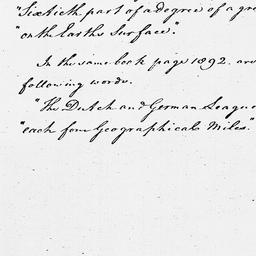 "Sixtieth part of a degree of a gre
"on the Earths Surface."
In the same book page 1892. are
following words.
"The Dutch and German League
"each four Geographical Miles."